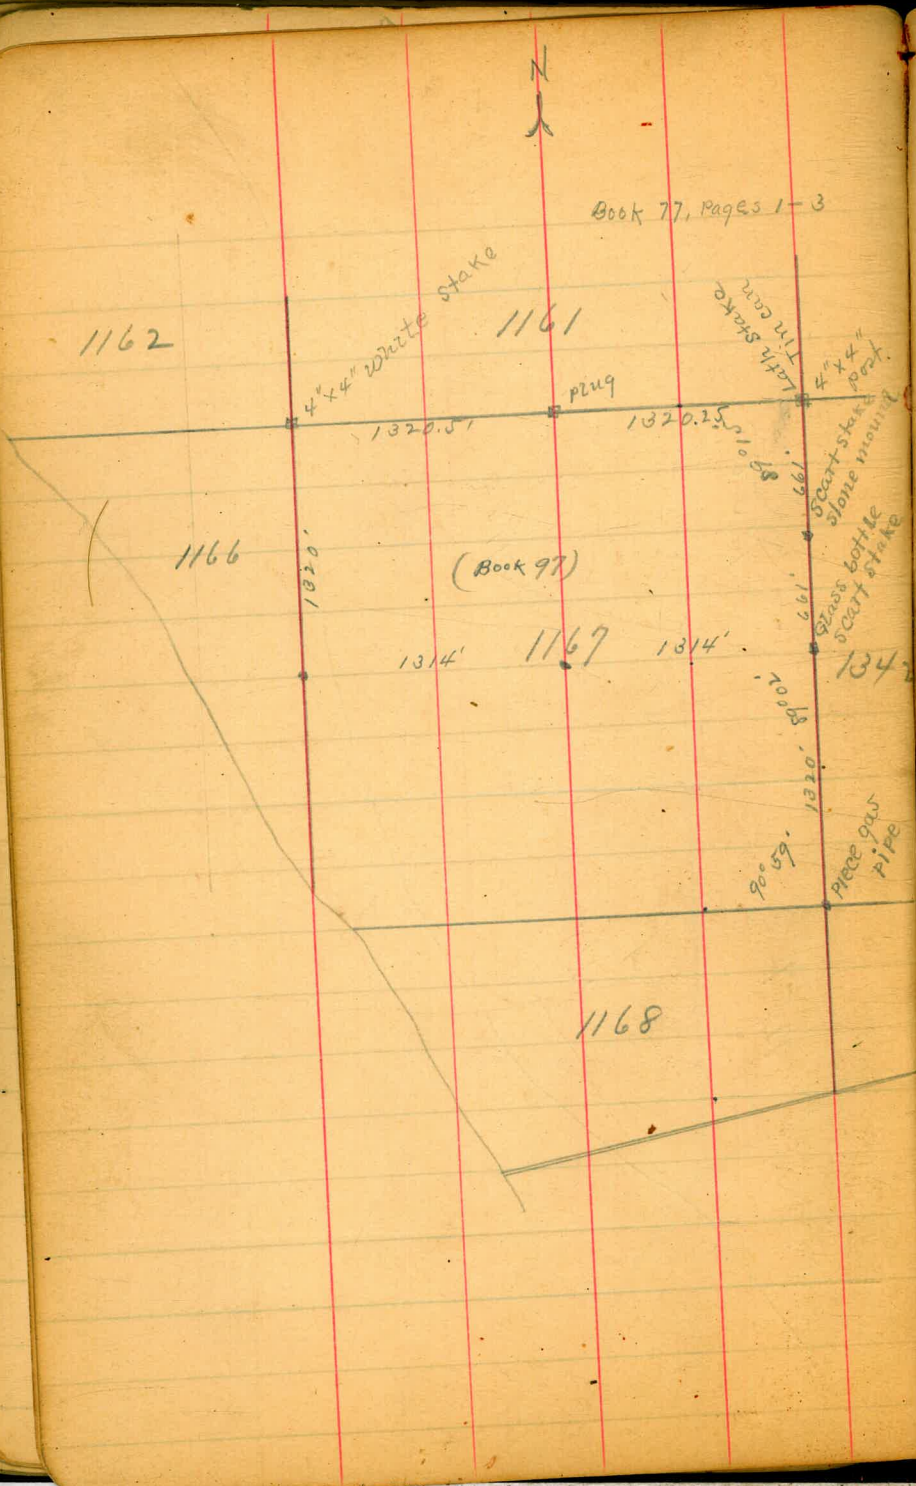 N
Book 77, Pages 1-3
1162
4"x4" White stake
1161
plug
Lath stake
Tin can
4"x4"
post.
1320.5'
1320.25'
89°01'
Scart stake
stone mound
199'
1166
1320'
(Book 97)
199'
Glass bottle
scart stake
1314'
1167
1314'
1342
89°02'
1320'
90°59'
Piece gas
pipe
1168